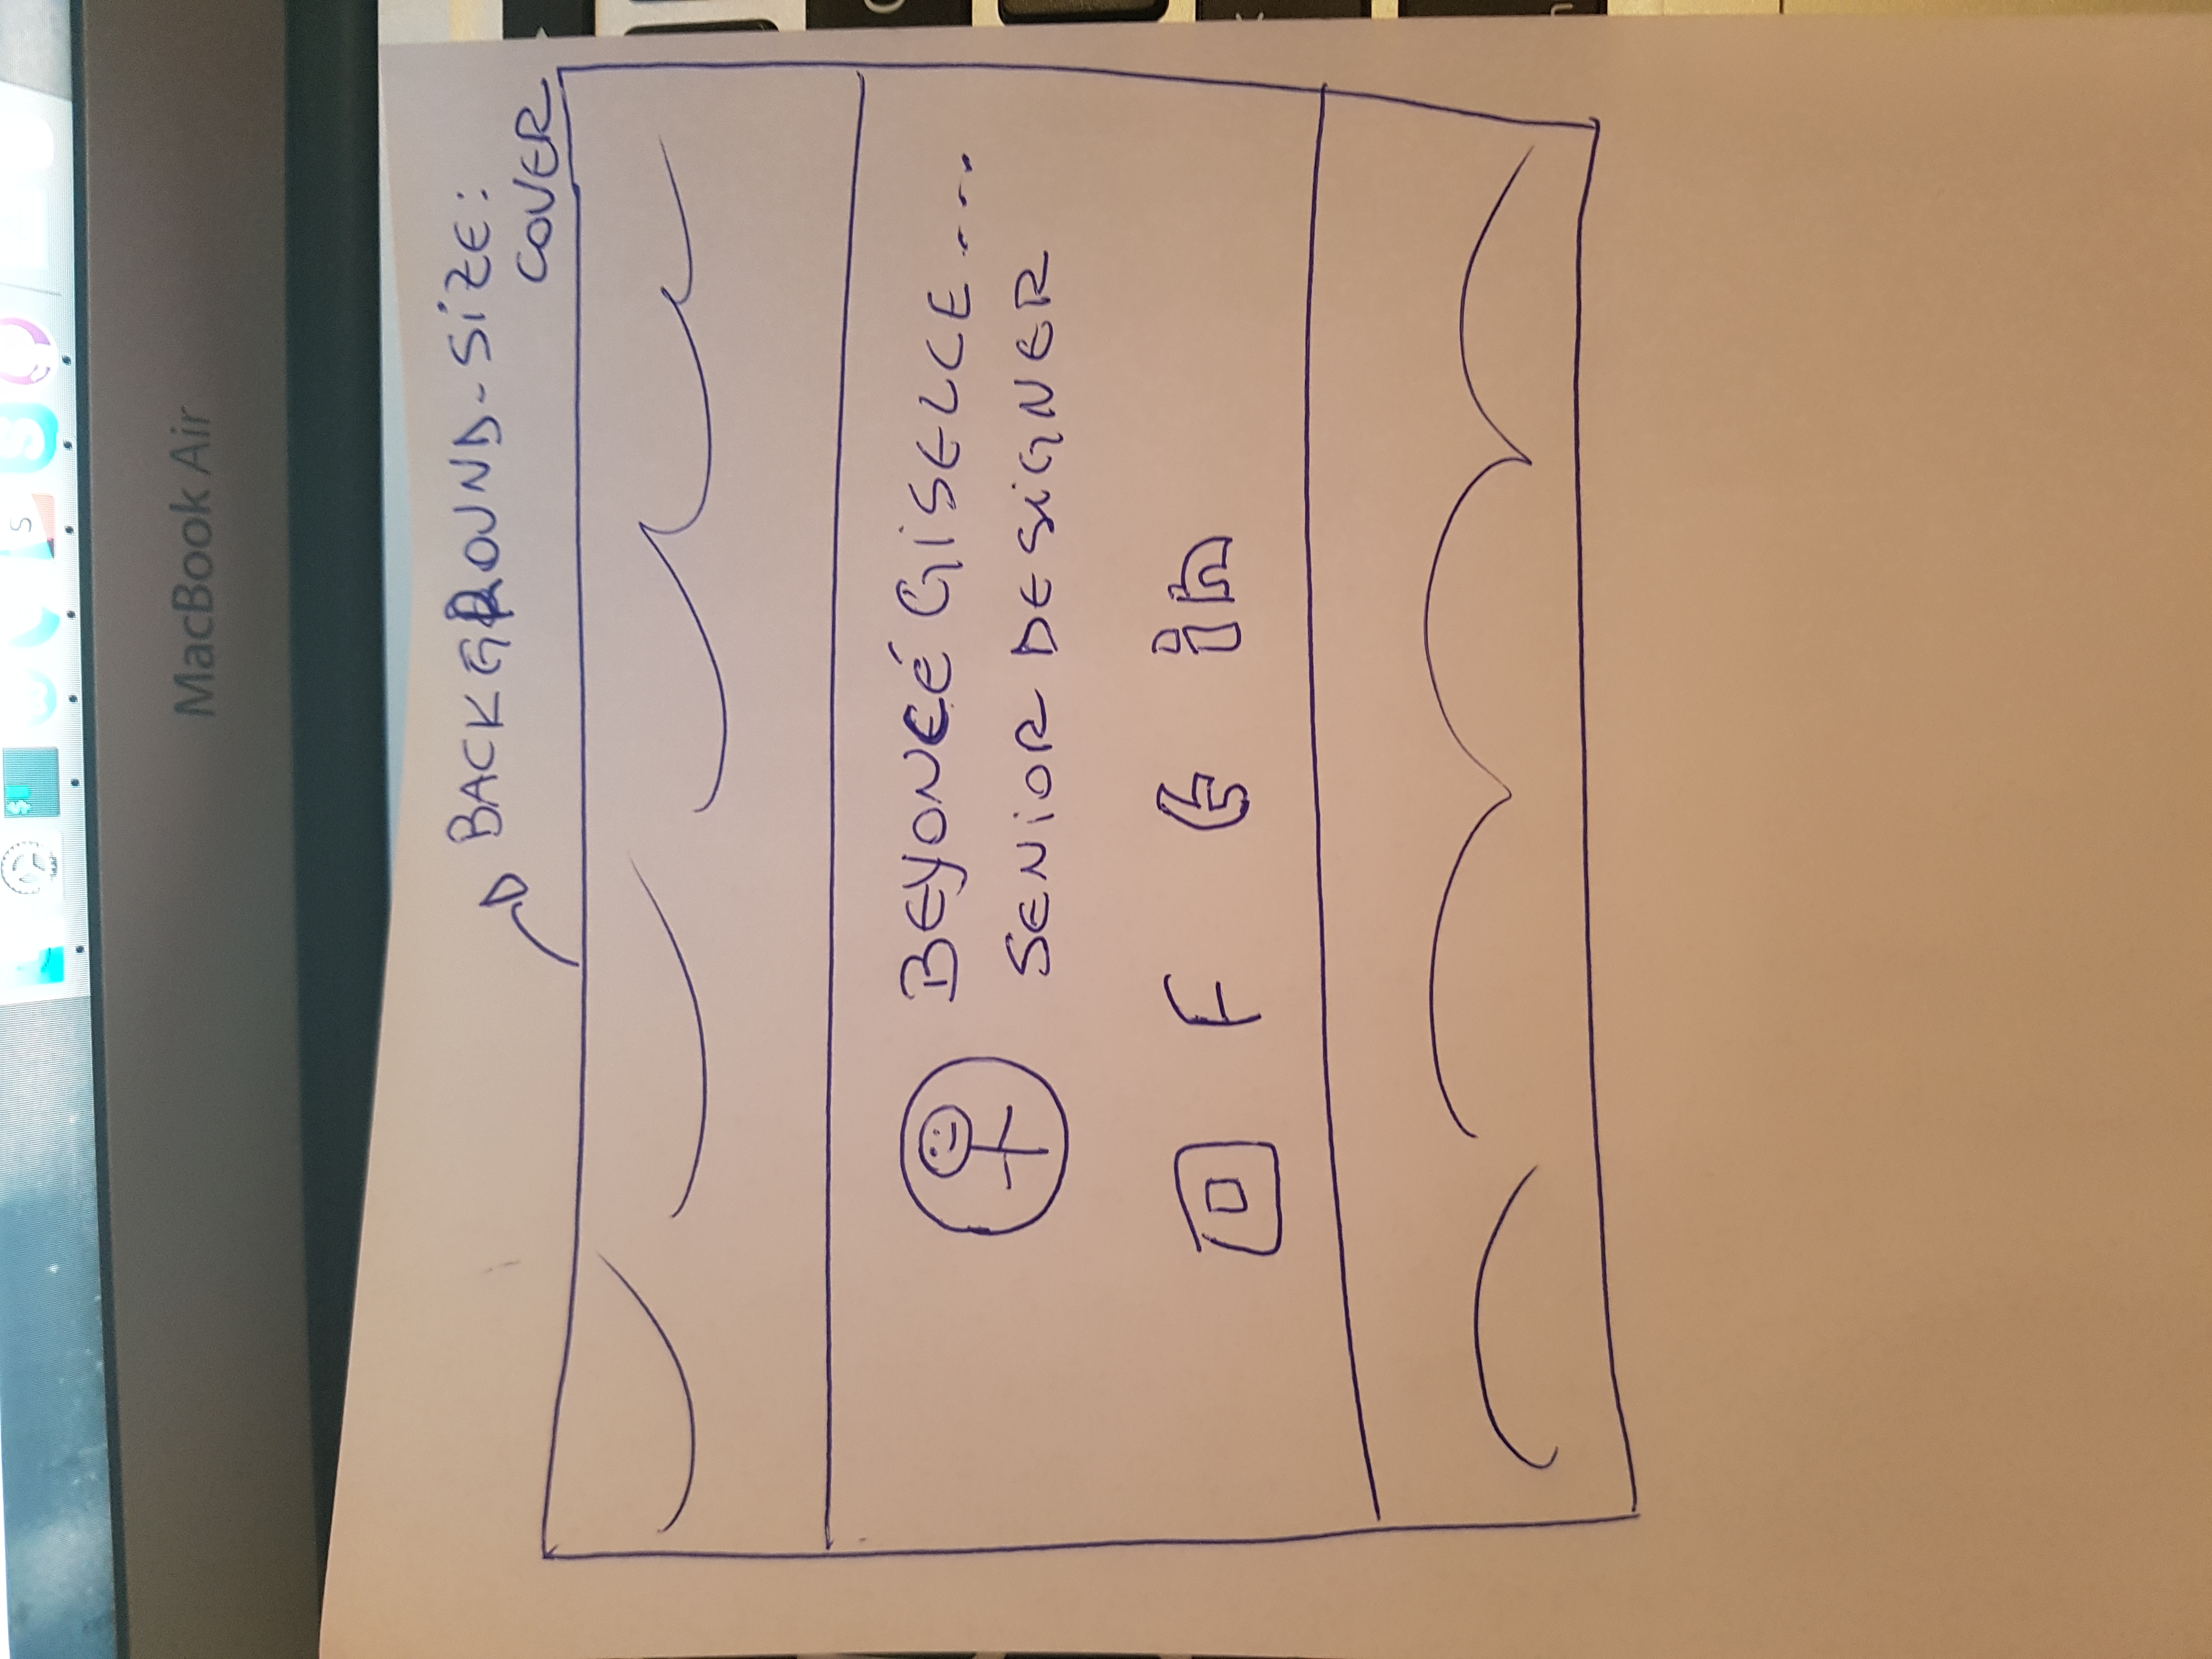 S
MacBook Air
BACKGROUND-SIZE:
COVER
BEYONCÉ GISELLE...
SENIOR DESIGNER
F t in